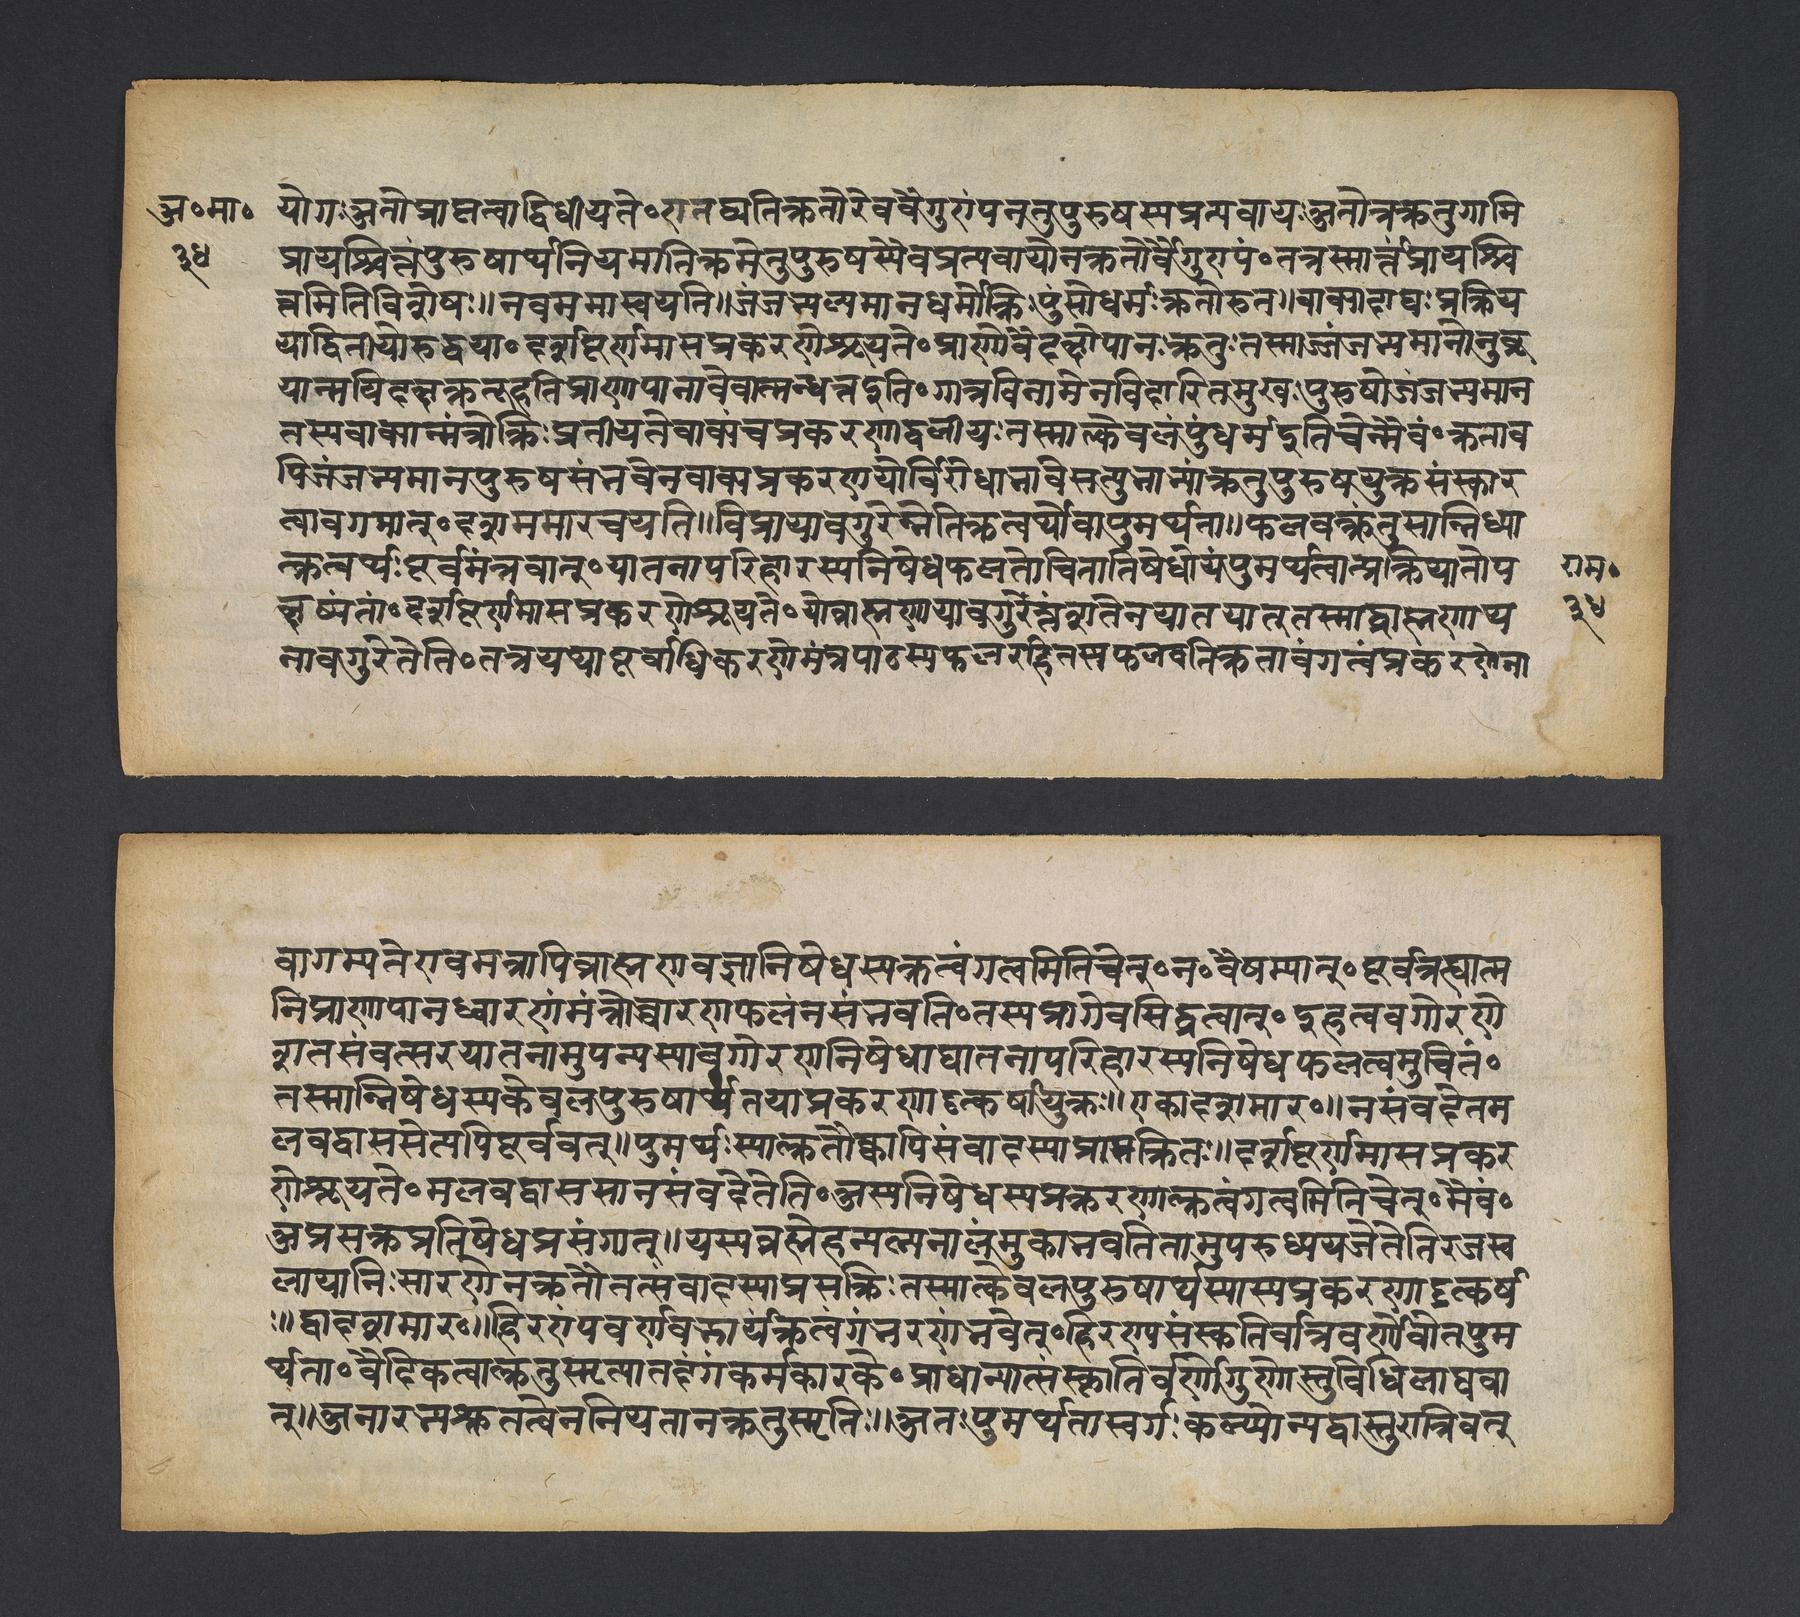 अ॰मा॰
३४
योगः अतोप्राप्तत्वाद्विधीयते॰एतद्व्यतिक्रतोरेववैगुण्यंपनतुपुरुषस्यप्रत्यवायःअतोत्रक्रतुगामि
प्रायश्चित्तंपुरुषार्थनियमातिक्रमेतुपुरुषस्यैवप्रत्यवायोनक्रतोर्वैगुण्यं॰तत्रस्मार्त्तंप्रायश्चि
त्तमितिविशेषः॥नवममास्वयति॥जंजभ्यमानधर्मोक्तिःपुंसोधर्मःक्रतोरुत॥वाक्याद्यःप्रक्रिय
याद्वितीयोरुद्धया॰दर्शपूर्णमासप्रकरणेश्रूयते॰प्राणोवैदक्षोपानःक्रतुःतस्माज्जंजभ्यमानोनुब्रू
यान्मयिदक्षक्रतूइतिप्राणापानावेवात्मन्धत्तइति॰गात्रविनामेनविदारितमुखःपुरुषोजंजभ्यमान
तस्यवाक्यान्मंत्रोक्तिःप्रतीयतेवाक्यंचप्रकरणाद्बलीयःतस्मात्केवलंपुंधर्मइतिचेन्मैवं॰क्रताव
पिजंजभ्यमानपुरुषसंभवेनवाक्यप्रकरणयोर्विरोधाभावेसत्युभाभ्यांक्रतुपुरुषयुक्तसंस्कार
त्वावगमात्॰दशममारचयति॥विप्रायावगुरेन्नेतिक्रत्वर्थोवापुमर्थता॥फलवत्क्रतुसान्निध्या
त्क्रत्वर्थःपूर्वमंत्रवान्॰यातनापरिहारस्यनिषेधफलतोचितानिषेधोयंपुमर्थत्वात्प्रक्रियातोप
कृष्यतां॰दर्शपूर्णमासप्रकरणेश्रूयते॰योब्राह्मणायावगुरेत्तंशतेनयातयात्तस्माद्ब्राह्मणाय
नावगुरेतेति॰तत्रयथापूर्वाधिकरणेमंत्रपाठस्यफलरहितस्यफलवतिक्रतावंगत्वंप्रकरणेना
राम॰
३४
वागम्यतेएवमत्रापिब्राह्मणावज्ञानिषेधस्यक्रत्वंगत्वमितिचेत्॰न॰वैषम्यात्॰पूर्वत्रह्यात्म
निप्राणापानधारणंमंत्रोच्चारणफलंनसंभवति॰तस्यप्रागेवसिद्धत्वात्॰इहत्ववगोरणे
शतसंवत्सरयातनामुपन्यस्यावगोरणनिषेधाद्यातनापरिहारस्यनिषेधफलत्वमुचितं॰
तस्मान्निषेधस्यकेवलपुरुषार्थतयाप्रकरणादुत्कर्षोयुक्तः॥एकादशमार॰॥नसंवदेतम
लवद्वाससेत्यपिपूर्ववत्॥पुमर्थःस्यात्क्रतौक्वापिसंवादस्याप्रासक्तितः॥दर्शपूर्णमासप्रकर
णेश्रूयते॰मलवद्वाससानसंवदेतेति॰अस्यनिषेधस्यप्रकरणात्क्रत्वंगत्वमितिचेत्॰मैवं॰
अप्रसक्तप्रतिषेधप्रसंगात्॥यस्यव्रत्येहन्पत्न्यनालंभुकाभवतितामुपरुध्ययजेतेतिरजस्व
लायानिःसारणेनक्रतौतत्संवादस्याप्रसक्तिःतस्मात्केवलपुरुषार्थस्यास्यप्रकरणादुत्कर्ष
ः॥द्वादशमार॰॥हिरण्यंपवर्णवद्भार्यंक्रत्वंगंनरगंभवेत्॰हिरण्यसंस्कृतिर्वात्रवर्णोवोतपुम
र्थता॰वैदिकत्वात्क्रतुस्मृत्यातदंगंकर्मकारके॰प्राधान्यात्संस्कृतिर्वर्णोगुणोस्तुविधिलाघवा
त्॥अनारभ्यश्रुतत्वेननियतानक्रतुस्मृतिः॥अतःपुमर्थतास्वर्गःकल्प्योन्यद्वास्तुरात्रिवत्